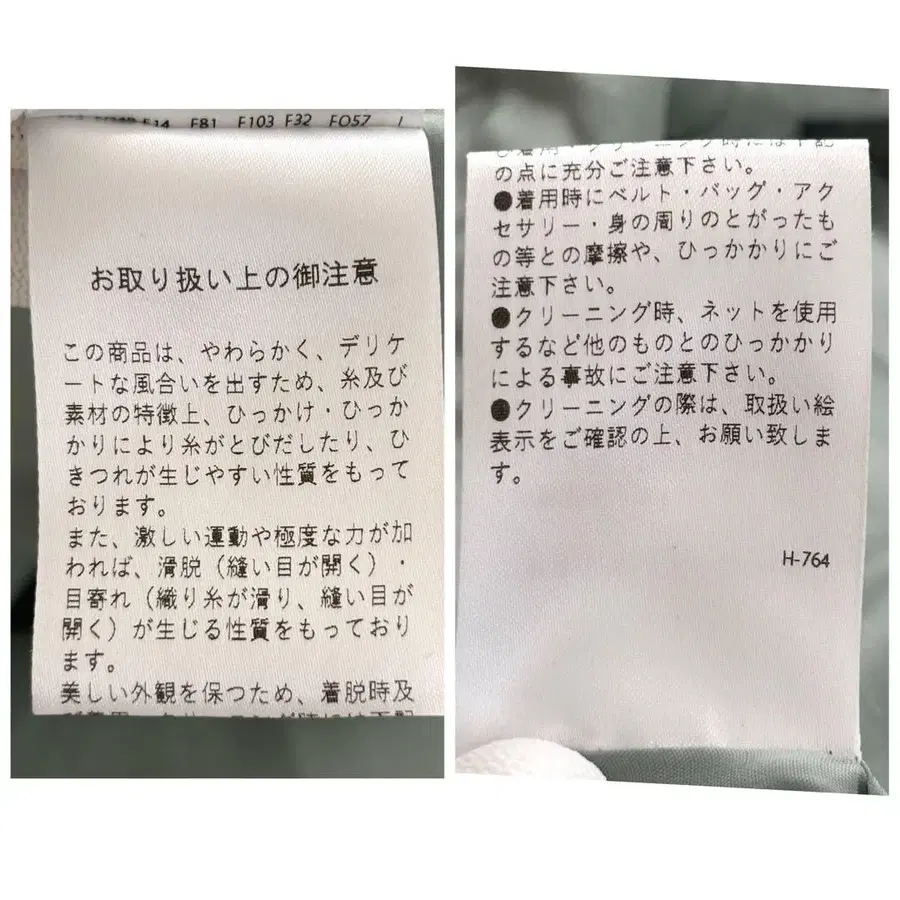 F14 F81 F103 F32 FO57
お取り扱い上の御注意
この商品は、やわらかく、デリケ
ートな風合いを出すため、糸及び
素材の特徴上、ひっかけ・ひっか
かりにより糸がとびだしたり、ひ
きつれが生じやすい性質をもって
おります。
また、激しい運動や極度な力が加
われば、滑脱（縫い目が開く）・
目寄れ（織り糸が滑り、縫い目が
開く）が生じる性質をもっており
ます。
美しい外観を保つため、着脱時及
び着用・クリーニング時には下記
の点に充分ご注意下さい。
●着用時にベルト・バッグ・アク
セサリー・身の周りのとがったも
の等との摩擦や、ひっかかりにご
注意下さい。
●クリーニング時、ネットを使用
するなど他のものとのひっかかり
による事故にご注意下さい。
●クリーニングの際は、取扱い絵
表示をご確認の上、お願い致しま
す。
H-764